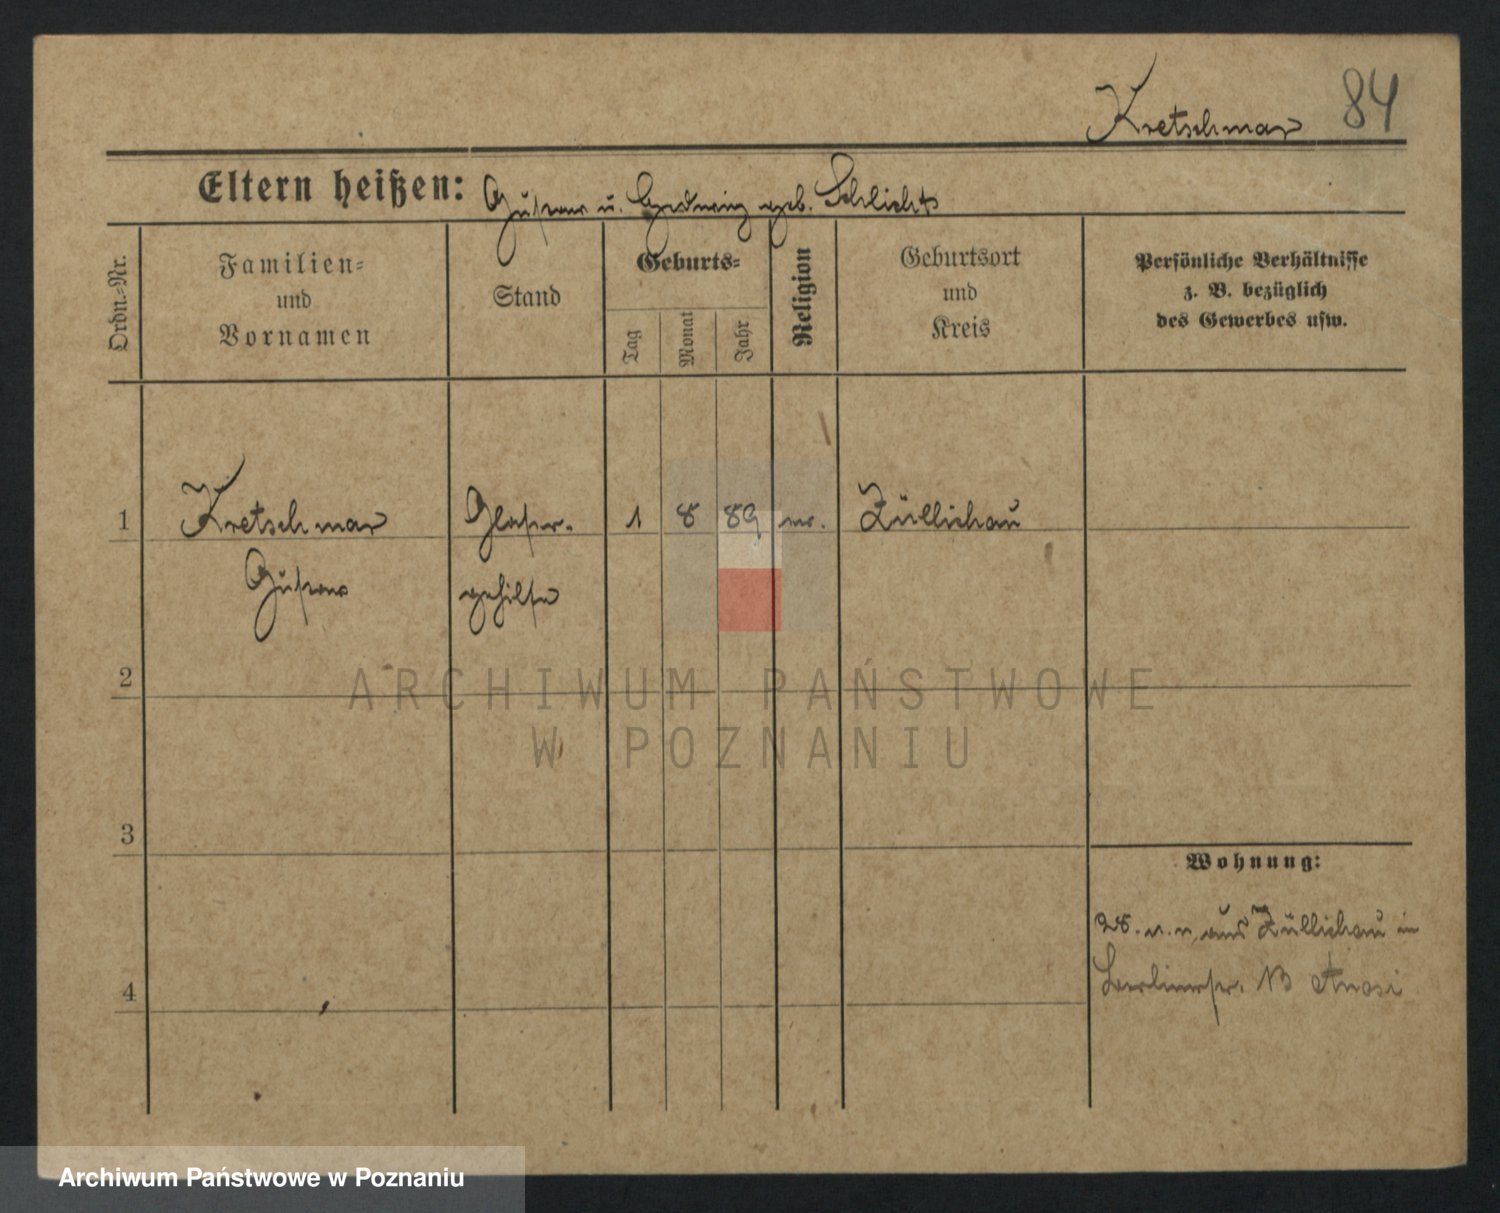 Kretschmar 84
Eltern heißen: Gustav u. Hedwig geb. Schlicht
Ordn.-Nr.
Familien-
und
Vornamen
Stand
Geburts-
Tag
Monat
Jahr
Religion
Geburtsort
und
Kreis
Persönliche Verhältnisse
z. B. bezüglich
des Gewerbes usw.
1 Kretschmar Glaser- 1 8 89 ev. Züllichau
Gustav gehilfe
2
ARCHIWUM PAŃSTWOWE
W POZNANIU
3
Wohnung:
aus Züllichau in
Berlinerstr. 13
4
Archiwum Państwowe w Poznaniu